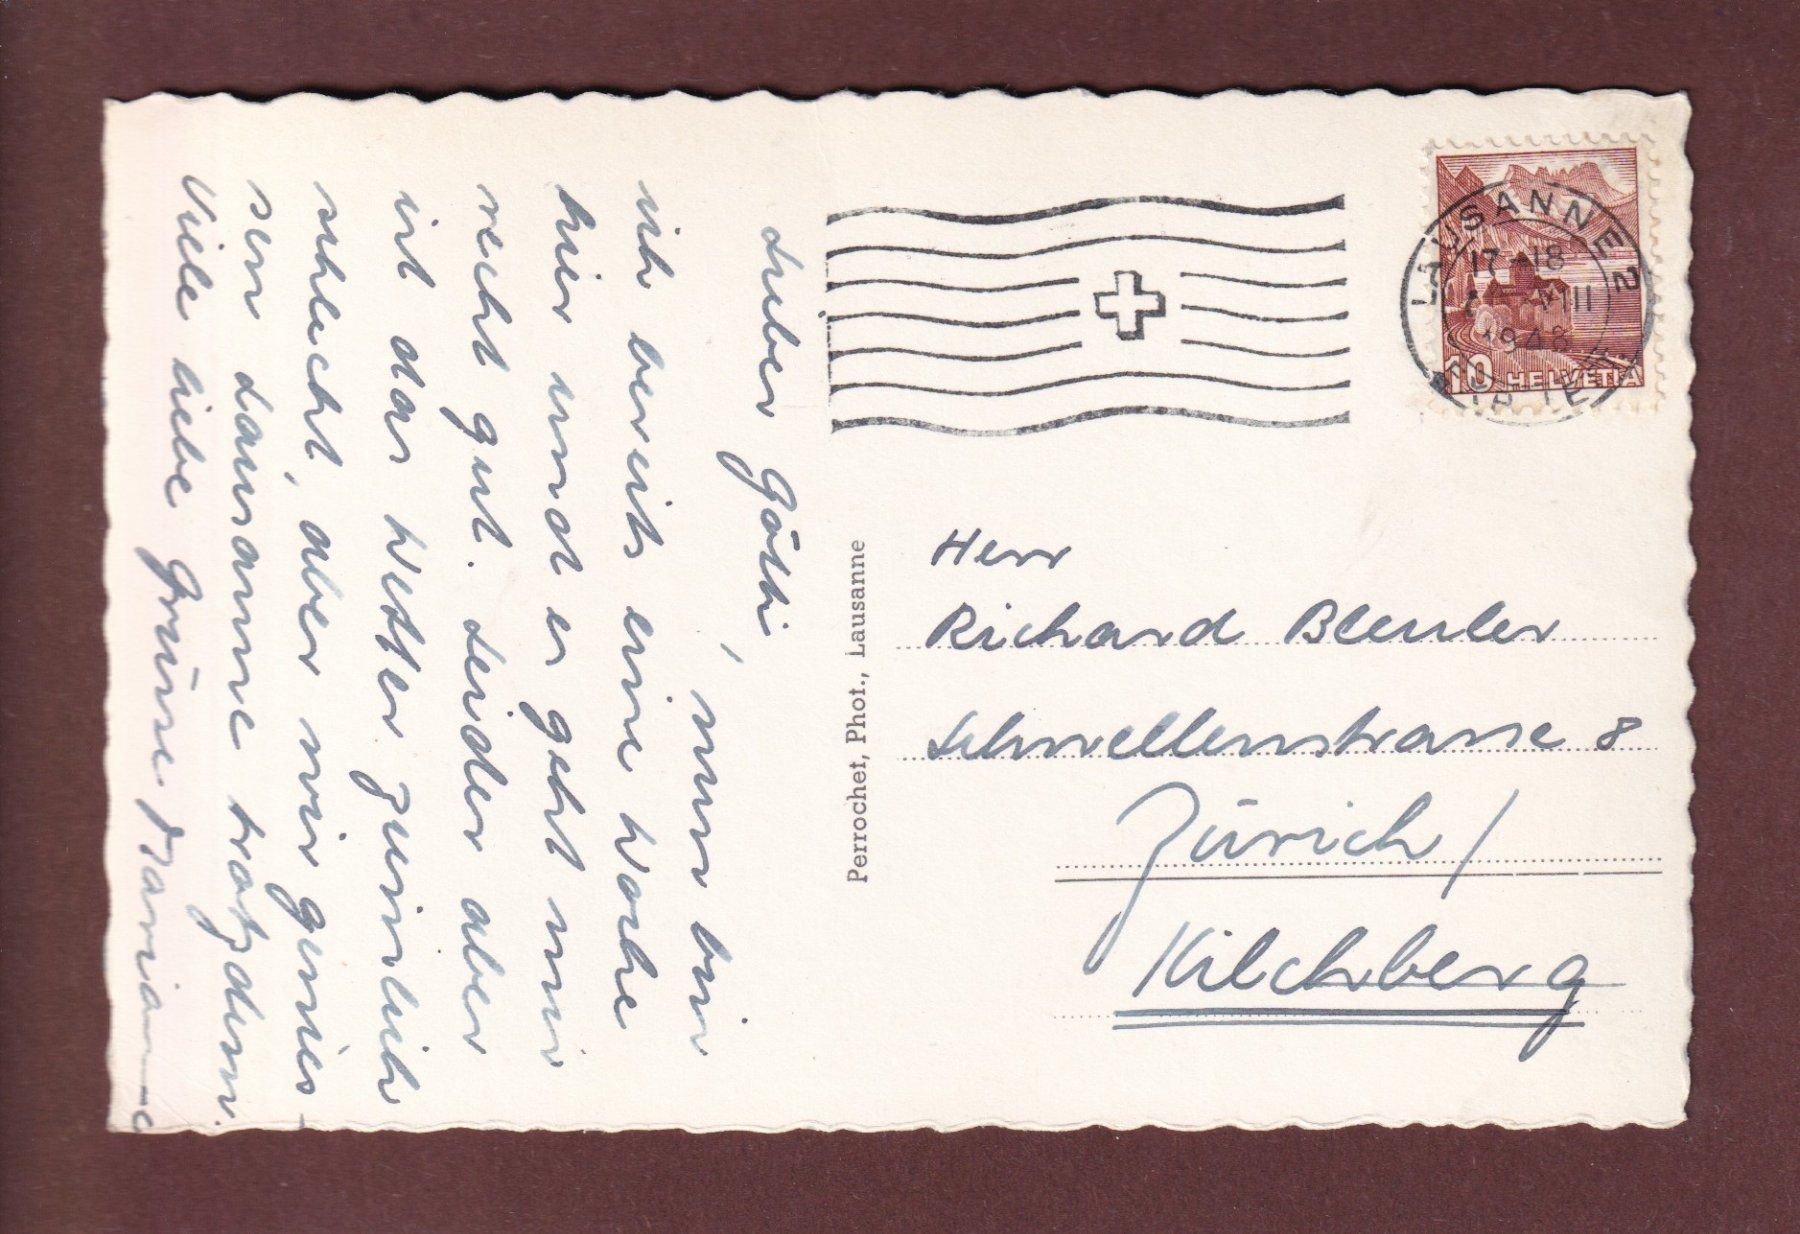 Lieber Götti,
nun bin
ich bereits eine Woche
hier und es geht mir
recht gut. Leider aber
ist das Wetter ziemlich
schlecht, aber wir genies-
sen Lausanne trotzdem.
Viele liebe Grüsse Marianne
Perrochet, Phot., Lausanne
LAUSANNE 2
17-18
VIII
1948
10 HELVETIA
Herr
Richard Bleuler
Schwellenstrasse 8
Zürich/
Kilchberg